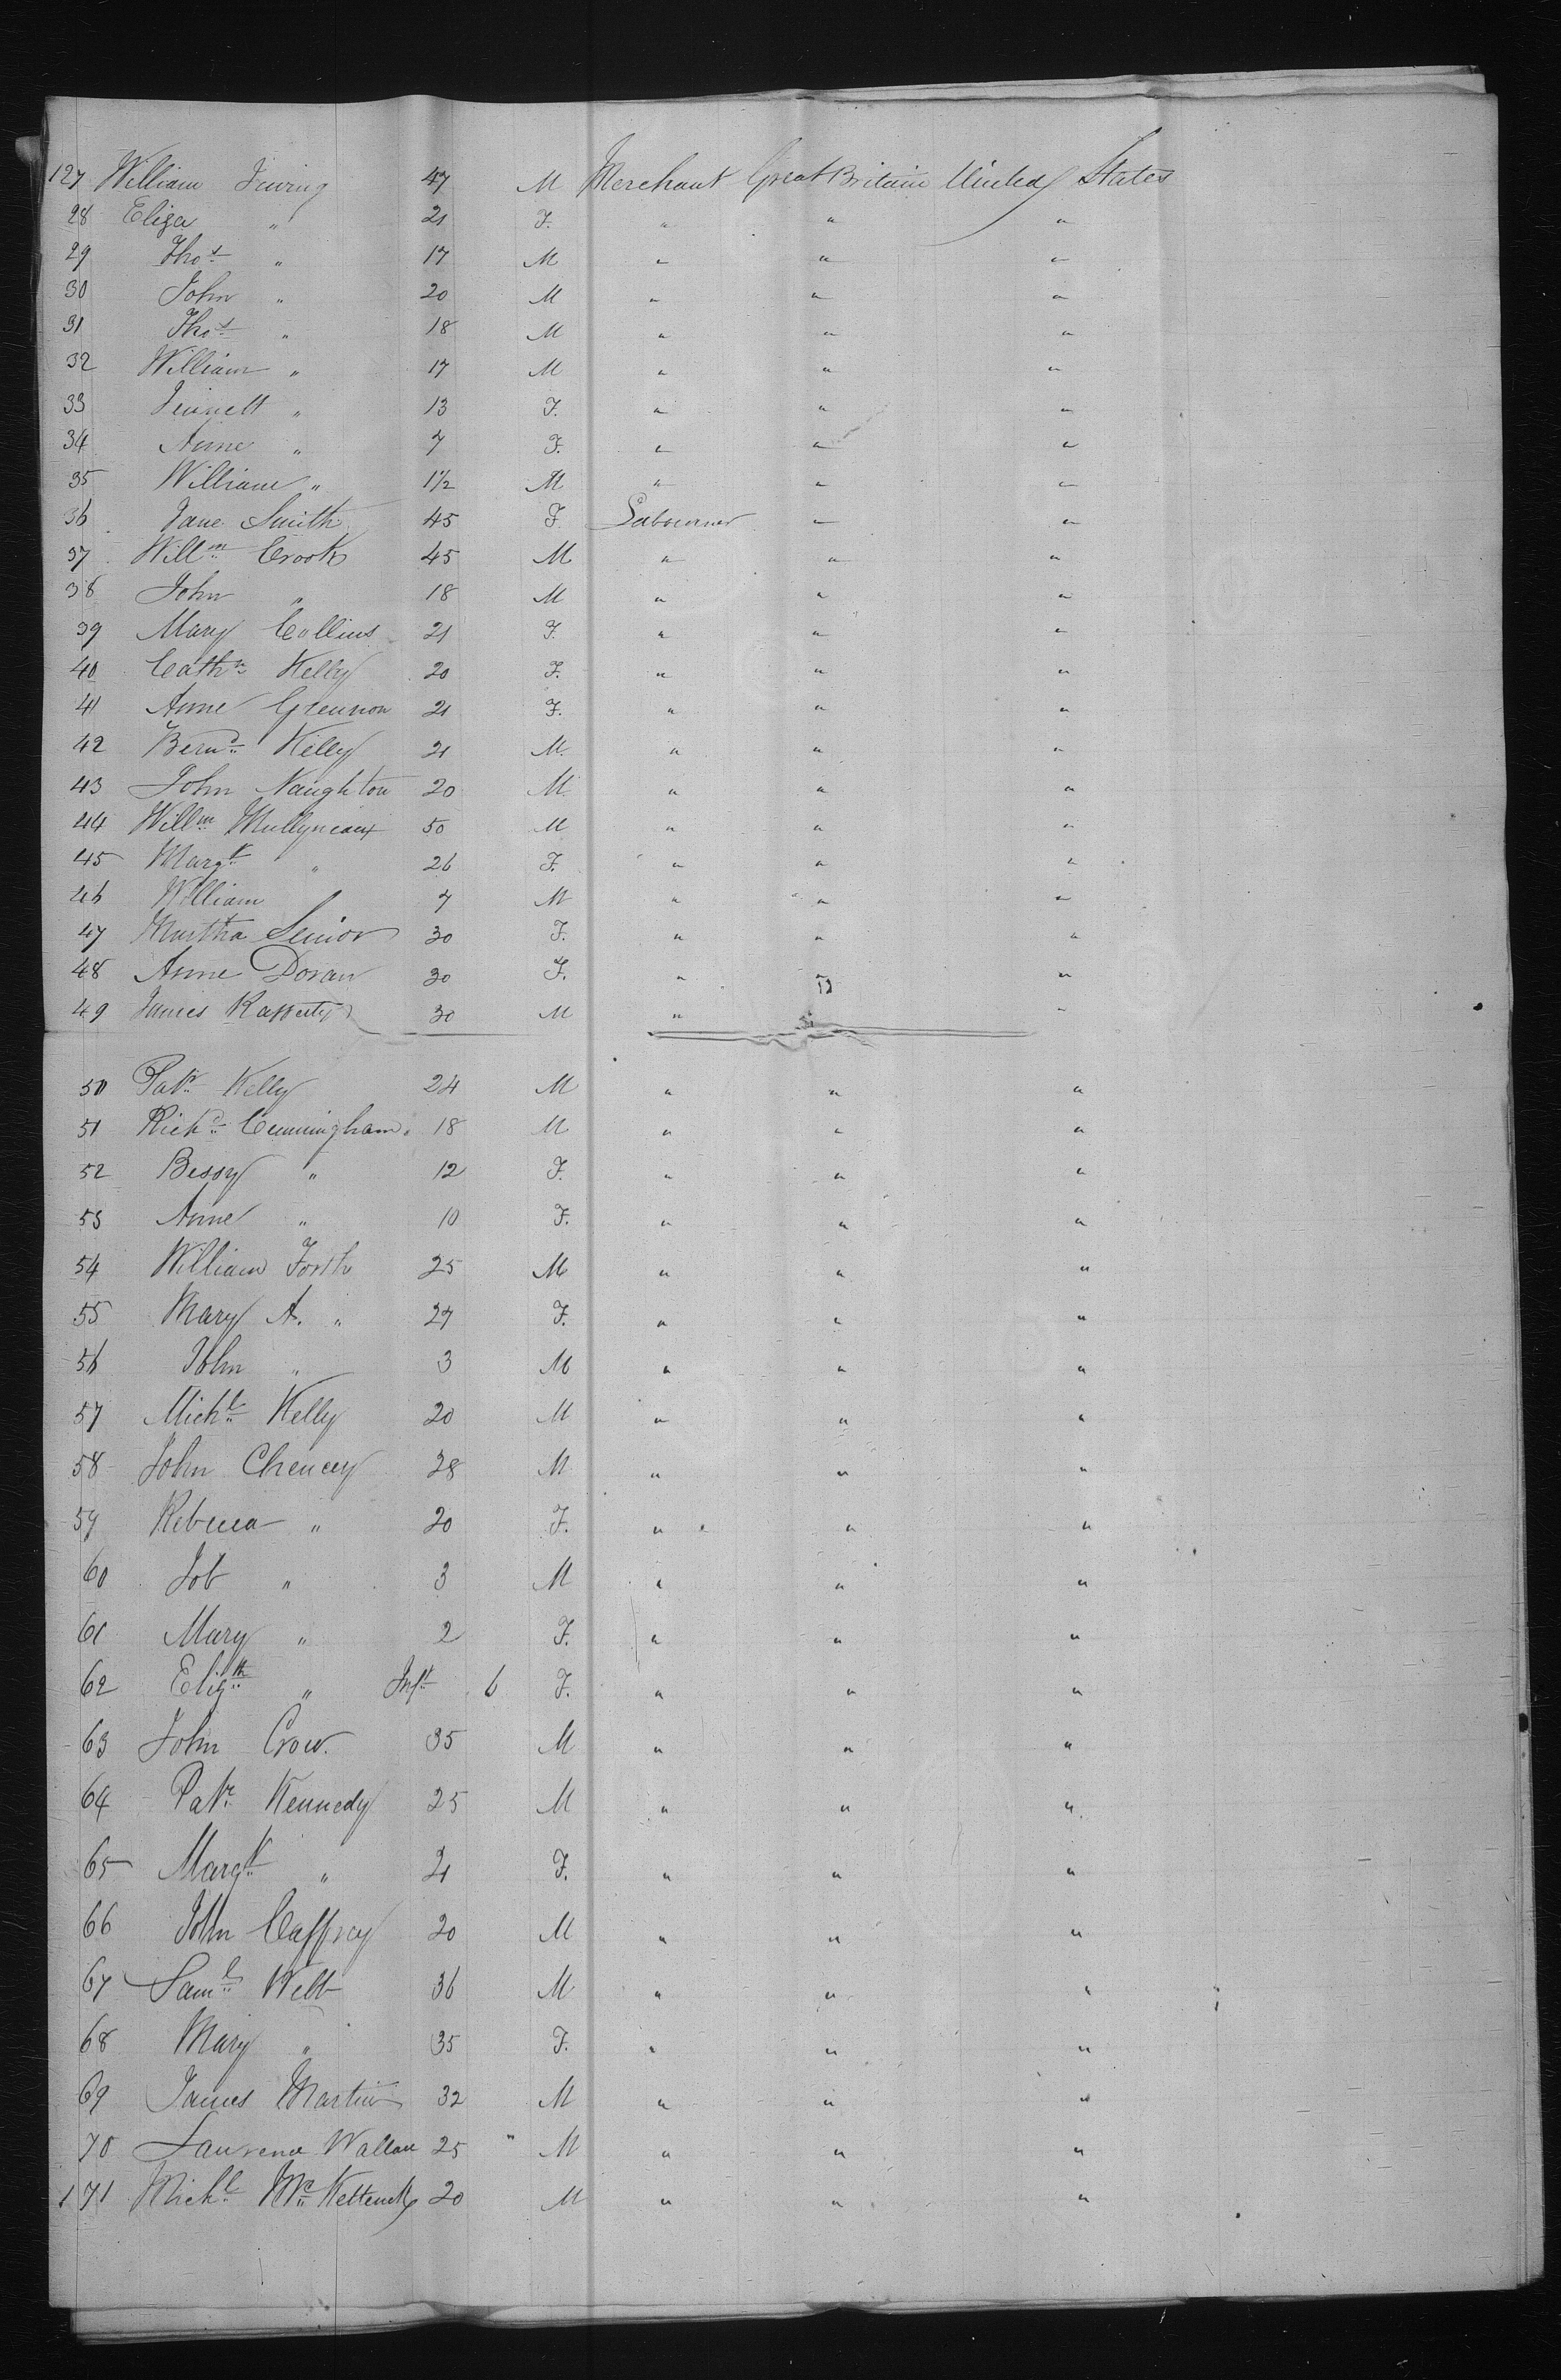 127 William Irving 47 M Merchant Great Britain United States
28 Eliza " 21 F. " " "
29 Thos " 17 M " " "
30 John " 20 M " " "
31 Thos " 18 M " " "
32 William " 17 M " " "
33 Jennett " 13 F. " " "
34 Anne " 7 F. " " "
35 William " 1½ M " " "
36 Jane Smith 45 F. " "
37 Willm Crook 45 M " " "
38 John " 18 M " " "
39 Mary Collins 21 F. " " "
40 Cathn Kelly 20 F. " " "
41 Anne Grennon 21 F. " " "
42 Bernd Kelly 21 M " " "
43 John Naughton 20 M " " "
44 Willm Mullyneaux 50 M " " "
45 Margt " 26 F. " " "
46 William 7 M " " "
47 Martha Senior 30 F. " " "
48 Anne Doran 30 F. " " "
49 James Rafferty 30 M " "
50 Patk Kelly 24 M " " "
51 Richd Cunningham 18 M " " "
52 Bessy " 12 F. " " "
53 Anne " 10 F. " " "
54 William Forth 25 M " " "
55 Mary A. " 27 F. " " "
56 John " 3 M " " "
57 Michl Kelly 20 M " " "
58 John Chencey 28 M " " "
59 Rebecca " 20 F. " " "
60 Job " 3 M " " "
61 Mary " 2 F. " " "
62 Elizth " Inft 6 F. " " "
63 John Crow. 35 M " " "
64 Patk Kennedy 25 M " " "
65 Margt " 21 F. " " "
66 John Caffrey 20 M " " "
67 Saml Webb 36 M " " "
68 Mary " 35 F. " " "
69 James Martin 32 M " " "
70 Laurence Wallace 25 " M " " "
171 Michl Mc 20 M " " "